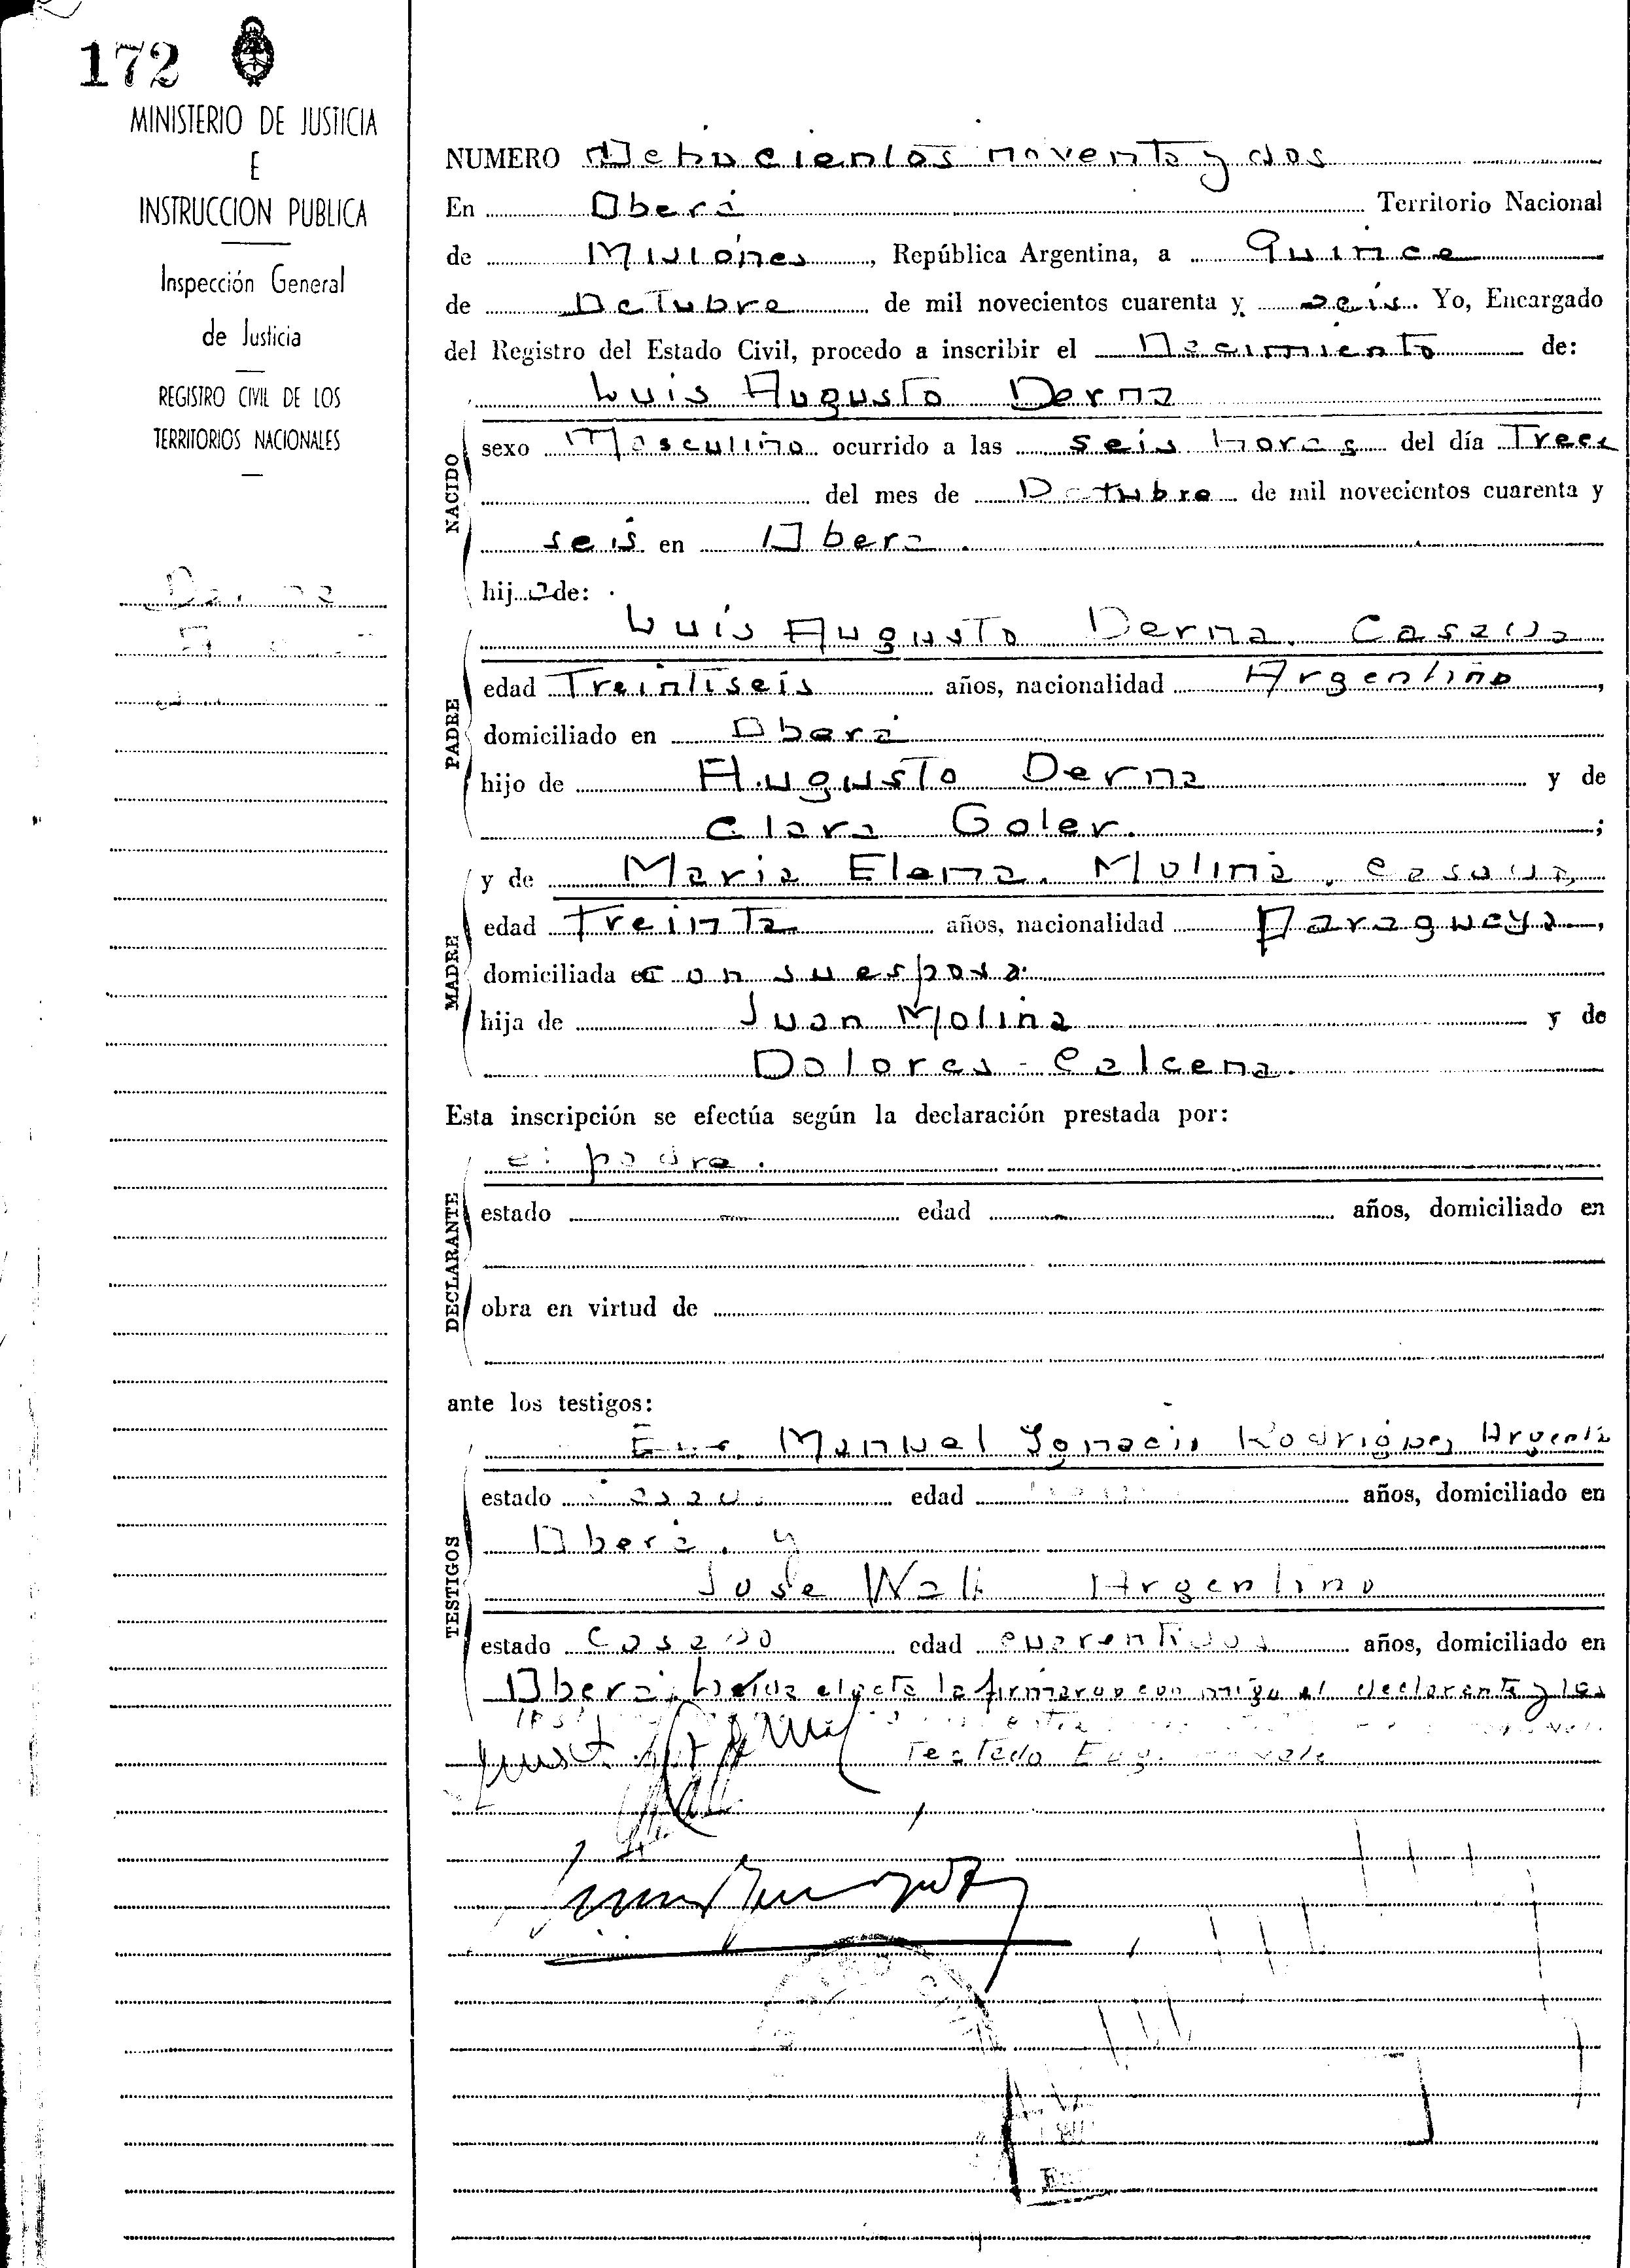 172
MINISTERIO DE JUSTICIA
E
INSTRUCCION PUBLICA
Inspección General
de Justicia
REGISTRO CIVIL DE LOS
TERRITORIOS NACIONALES
NUMERO Ochocientos noventa y dos
En Oberá Territorio Nacional
de Misiones, República Argentina, a Quince
de Octubre de mil novecientos cuarenta y seis. Yo, Encargado
del Registro del Estado Civil, procedo a inscribir el Nacimiento de:
NACIDO
Luis Augusto Derna
sexo Masculino ocurrido a las seis horas del día Trece
del mes de Octubre de mil novecientos cuarenta y
seis en Oberá.
hijo de:
PADRE
Luis Augusto Derna. Casado
edad Treintiseis años, nacionalidad Argentino,
domiciliado en Oberá
hijo de Augusto Derna y de
Clara Goler. ;
MADRE
y de Maria Elena. Molina, casada,
edad Treinta años, nacionalidad Paraguaya,
domiciliada con su esposo.
hija de Juan Molina y de
Dolores Calcena.
Esta inscripción se efectúa según la declaración prestada por:
DECLARANTE
el padre.
estado — edad — años, domiciliado en
obra en virtud de
ante los testigos:
TESTIGOS
Manuel Ignacio Rodriguez
estado edad años, domiciliado en
Oberá. y
José Argentino
estado Casado edad cuarentidos años, domiciliado en
Oberá. Leida el acta la firmaron con migo el declarante y los
Testado vale